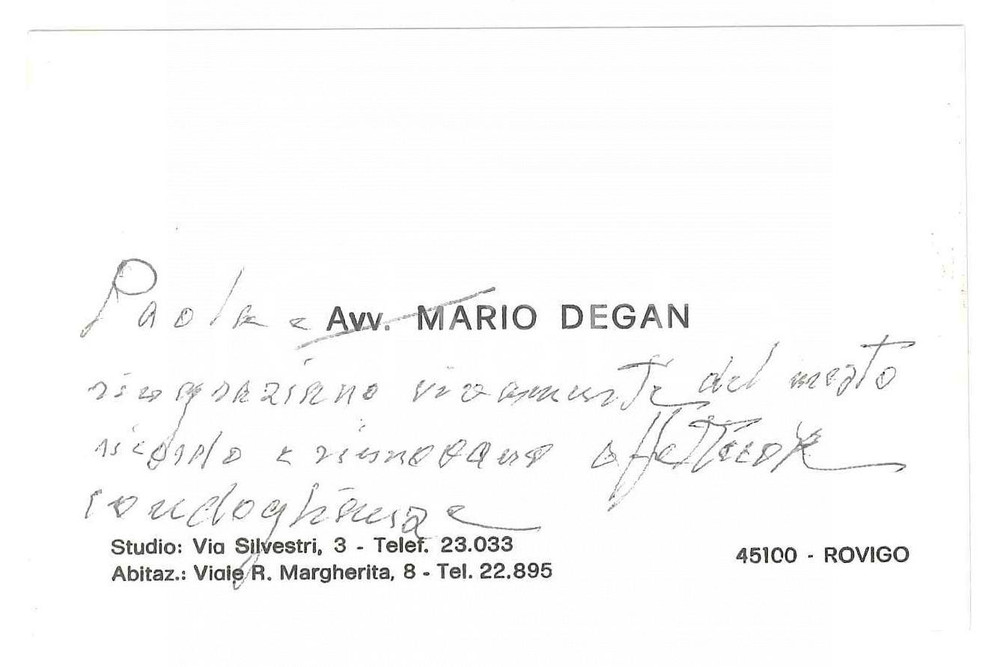 Paola e Avv. MARIO DEGAN
ringraziano vivamente del mesto
ricordo e rinnovano affettuose
condoglianze
Studio: Via Silvestri, 3 - Telef. 23.033
Abitaz.: Viale R. Margherita, 8 - Tel. 22.895
45100 - ROVIGO